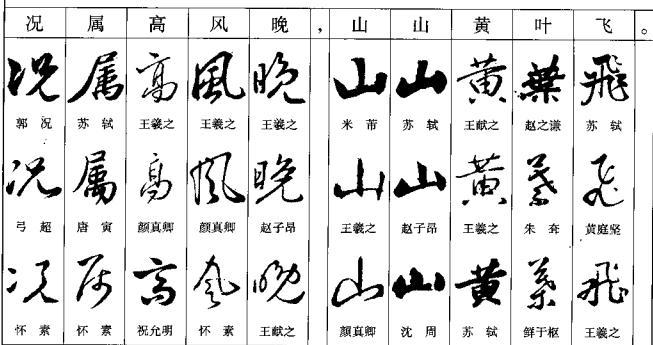 况 属 高 风 晚 , 山 山 黄 叶 飞 。
况 属 高 風 晚 山 山 黄 葉 飛
郭况 苏轼 王羲之 王羲之 王羲之 米芾 苏轼 王献之 赵之谦 苏轼
况 属 高 風 晚 山 山 黄 葉 飛
弓超 唐寅 颜真卿 颜真卿 赵子昂 王羲之 赵子昂 王羲之 朱耷 黄庭坚
况 属 高 風 晚 山 山 黄 葉 飛
怀素 怀素 祝允明 怀素 王献之 颜真卿 沈周 苏轼 鲜于枢 王羲之